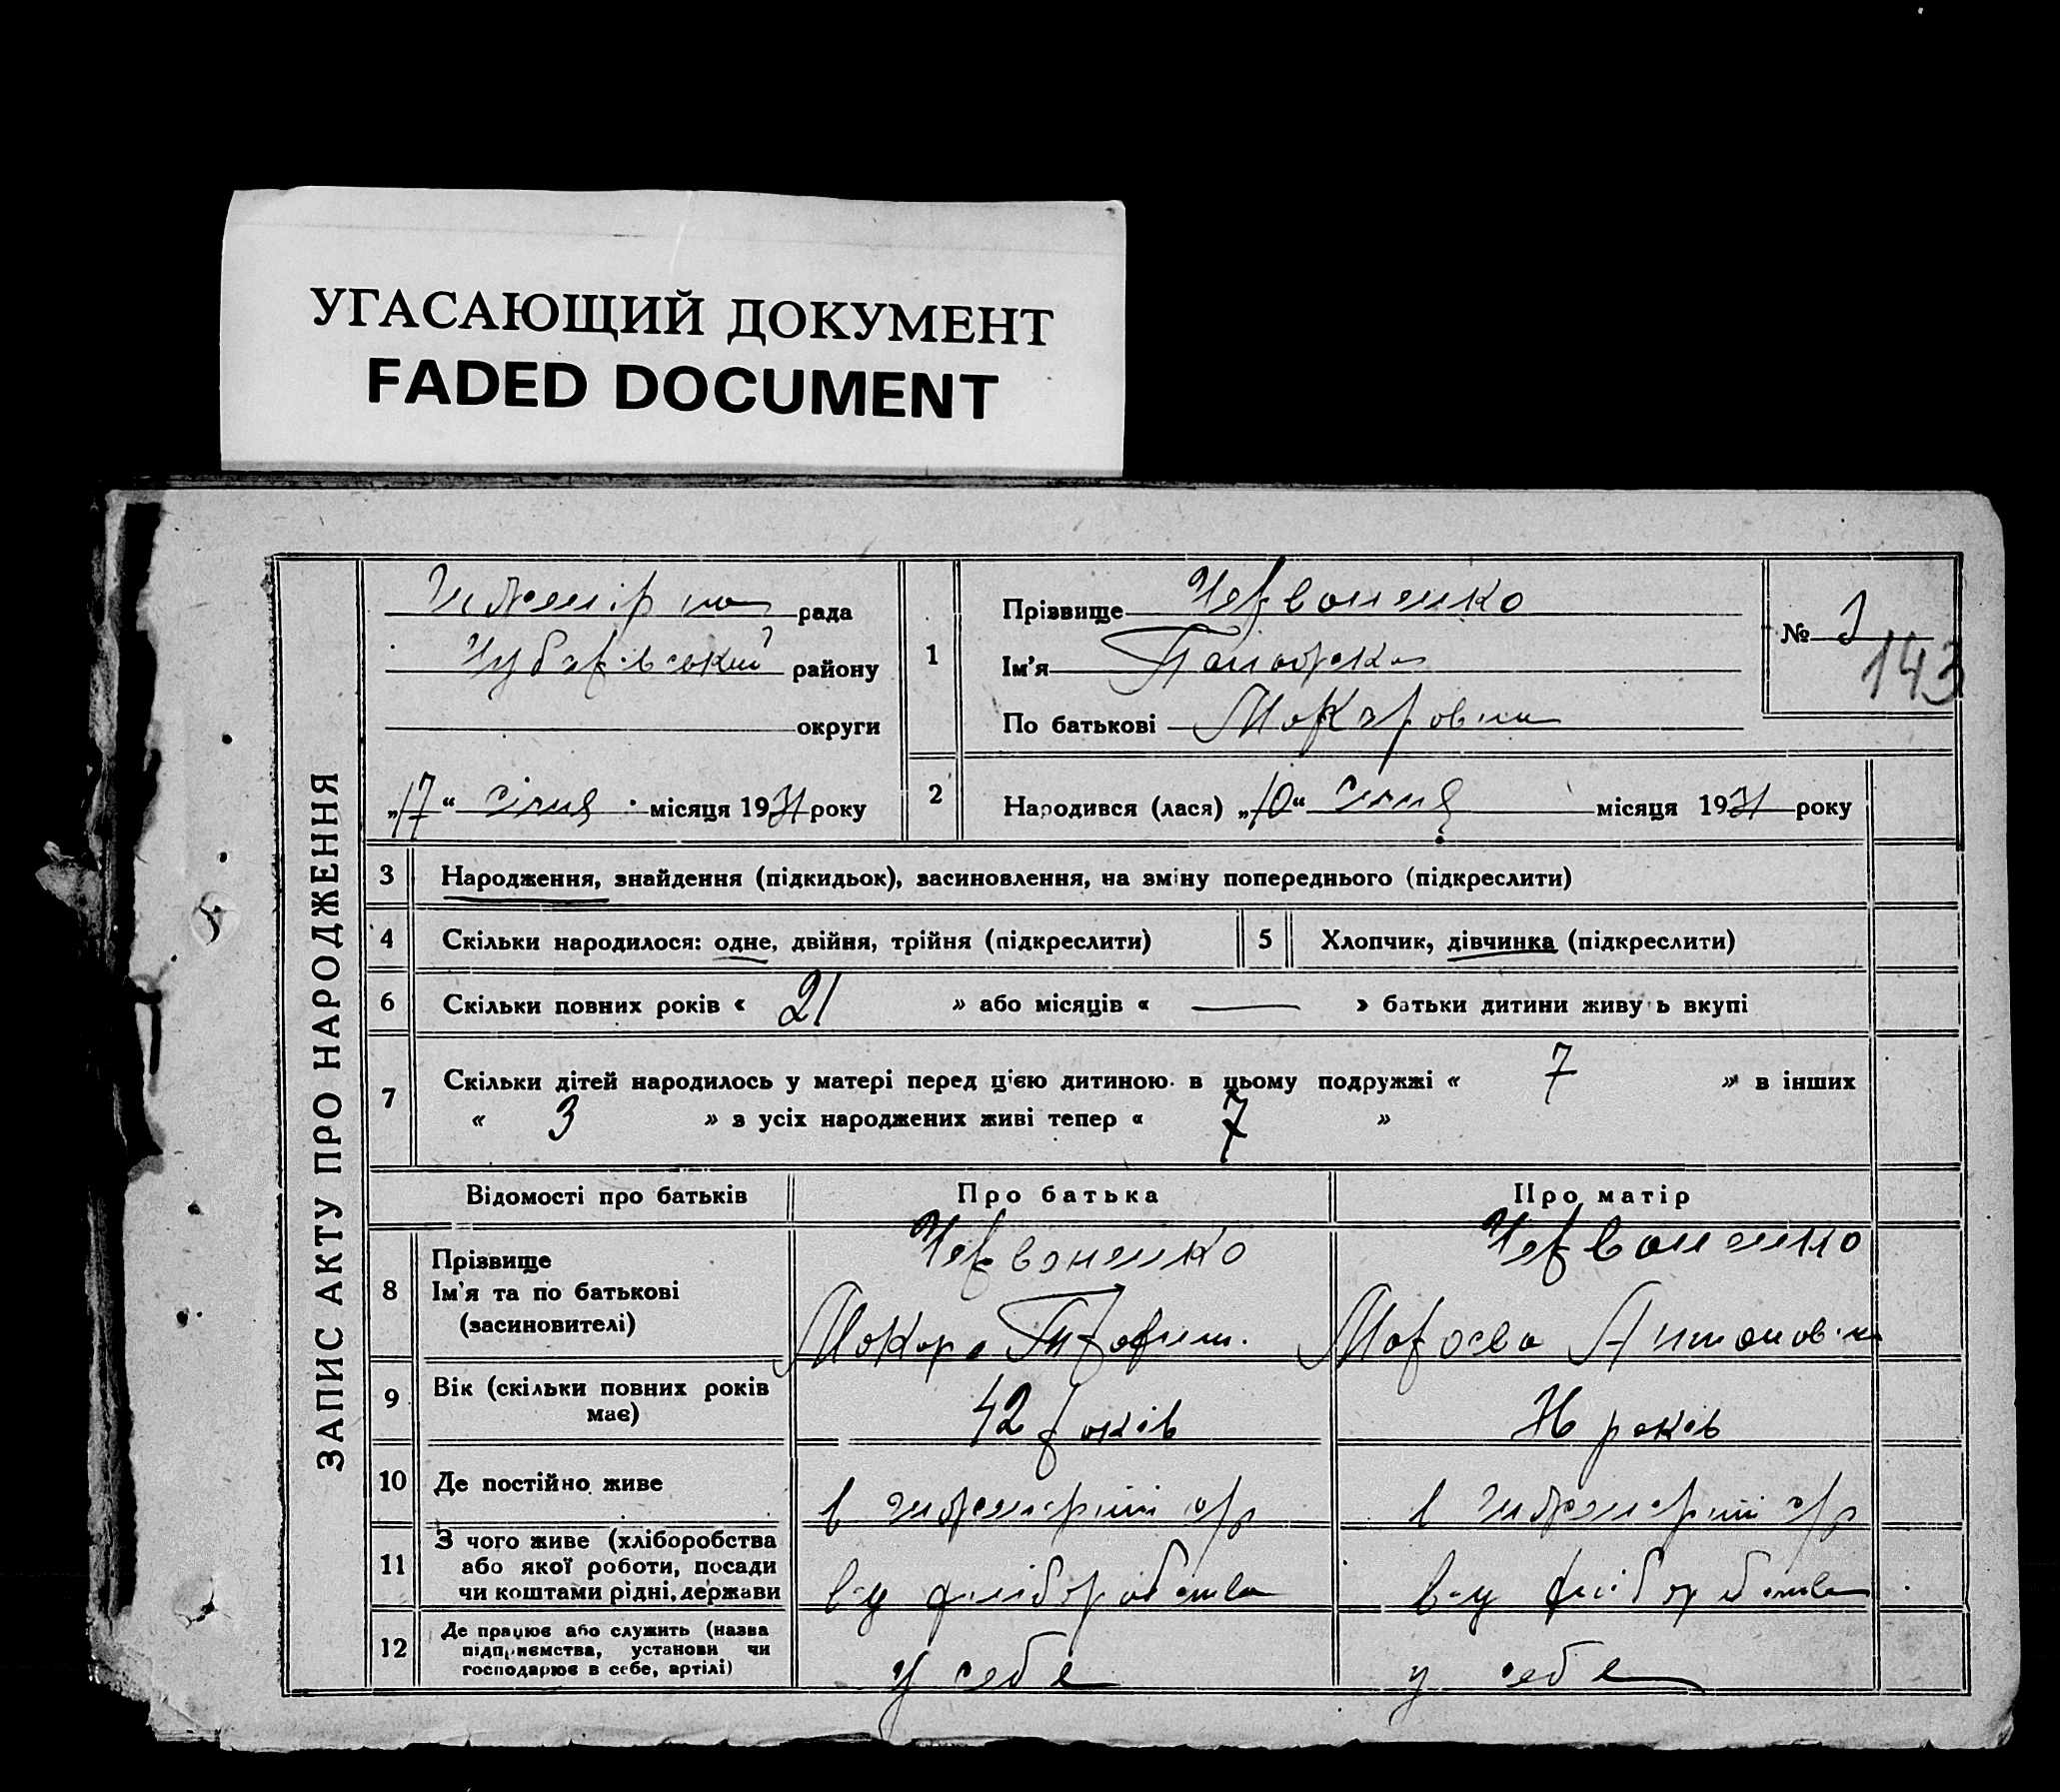 УГАСАЮЩИЙ ДОКУМЕНТ
FADED DOCUMENT
ЗАПИС АКТУ ПРО НАРОДЖЕННЯ
рада
Чубарівський району
округи
„17“ січня місяця 1931 року
1
Прізвище Червоненко
Ім’я
По батькові Макаровна
№ 3
143
2 Народився (лася) „10“ січня місяця 1931 року
3 Народження, знайдення (підкидьок), засиновлення, на зміну попереднього (підкреслити)
4 Скільки народилося: одне, двійня, трійня (підкреслити)
5 Хлопчик, дівчинка (підкреслити)
6 Скільки повних років « 21 » або місяців « — » батьки дитини живуть вкупі
7 Скільки дітей народилось у матері перед цією дитиною в цьому подружжі « 7 » в інших
« 3 » з усіх народжених живі тепер « 7 »
Відомості про батьків Про батька Про матір
8 Прізвище Червоненко Червоненко
Ім’я та по батькові
(засиновителі) Макара Антонов
9 Вік (скільки повних років
має) 42 років років
10 Де постійно живе в в
11 З чого живе (хліборобства
або якої роботи, посади
чи коштами рідні, держави хліборобства хліборобства
12 Де працює або служить (назва
підприємства, установи чи
господарює в себе, артілі) у себе у себе